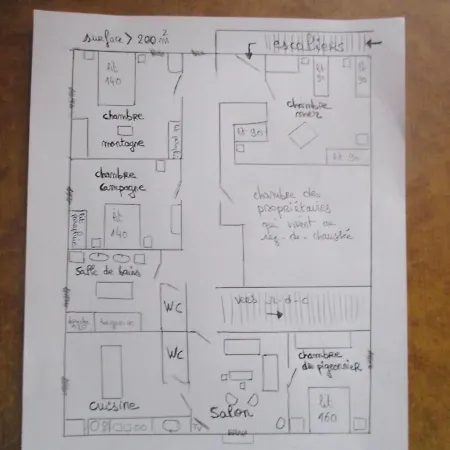 surface > 200 m²
escaliers
lit
140
lit
90
lit
90
chambre
montagne
chambre
mer
lit 90
lit 90
chambre
campagne
chambre de
propriétaires
qui vivent au
rez-de-chaussée
lit
140
salle de bains
WC
vers r-d-c
WC
chambre
du pigeonnier
cuisine
salon
lit
160
TV